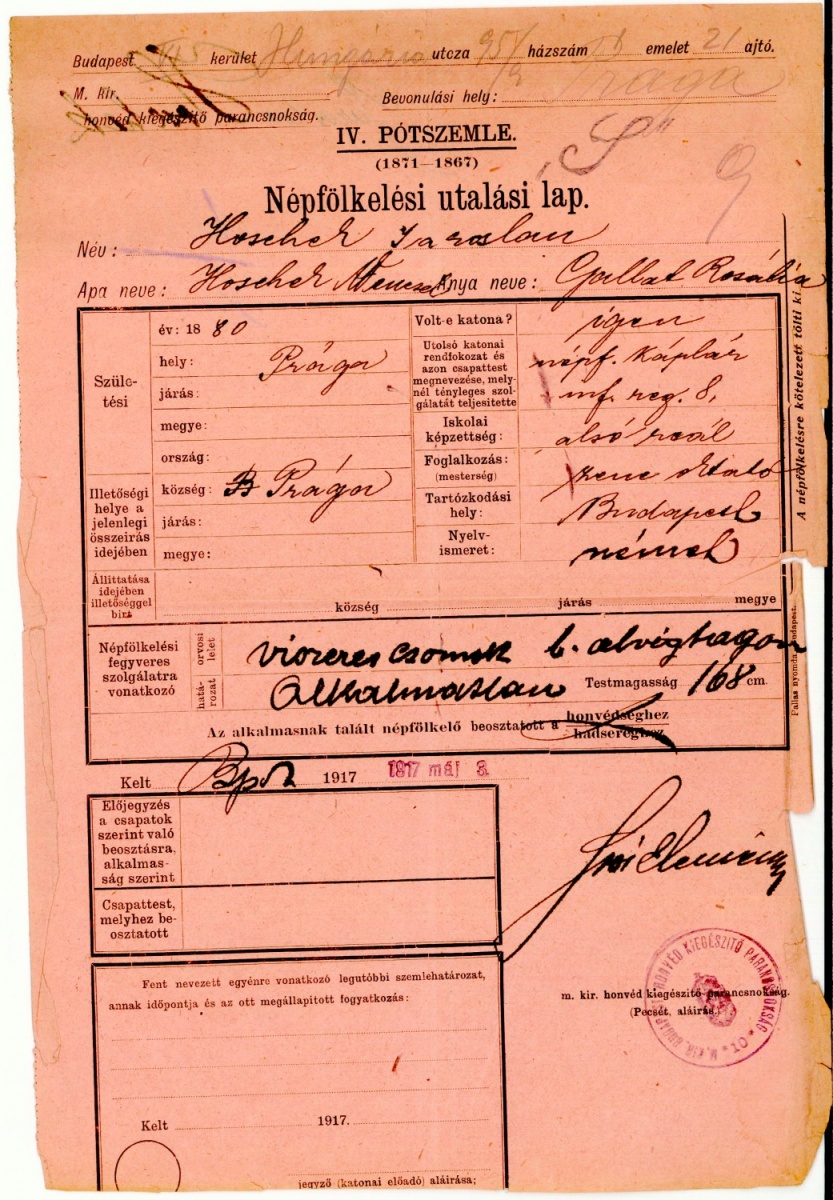 Budapest VII kerület Hungária utcza 95/ házszám emelet 21 ajtó.
M. kir.
honvéd kiegészítő parancsnokság.
Bevonulási hely: Prága
IV. PÓTSZEMLE.
(1871—1867)
"S"
Népfölkelési utalási lap.
Név: Hoschek Jaroslau
Apa neve: Hoschek Anya neve: Gallat Rosália
Születési
év: 1880
hely: Prága
járás:
megye:
ország:
Illetőségi helye a jelenlegi összeirás idejében
község: Prága
járás:
megye:
Volt-e katona? igen
Utolsó katonai rendfokozat és azon csapattest megnevezése, melynél tényleges szolgálatát teljesitette
népf. káplár
inf. reg. 8.
Iskolai képzettség: alsó reál
Foglalkozás: (mesterség) zene oktató
Tartózkodási hely: Budapest
Nyelvismeret: német
A népfölkelésre kötelezett tölti ki
Állittatása idejében illetőséggel birt
község járás megye
Népfölkelési fegyveres szolgálatra vonatkozó
orvosi lelet
viszeres csomók b. alvégtagon
határozat
Alkalmatlan Testmagasság 168 cm.
Az alkalmasnak talált népfölkelő beosztatott a honvédséghez
hadsereghez
Pallas nyomda, Budapest.
Kelt Bpest 1917 1917 máj 3.
Előjegyzés a csapatok szerint való beosztásra, alkalmasság szerint
Csapattest, melyhez beosztatott
m. kir. honvéd kiegészitő parancsnokság.
(Pecsét, aláirás.)
M. KIR. BUDAPESTI HONVÉD KIEGÉSZITŐ PARANCSNOKSÁG
Fent nevezett egyénre vonatkozó legutóbbi szemlehatározat,
annak időpontja és az ott megállapitott fogyatkozás:
Kelt 1917.
jegyző (katonai előadó) aláirása;